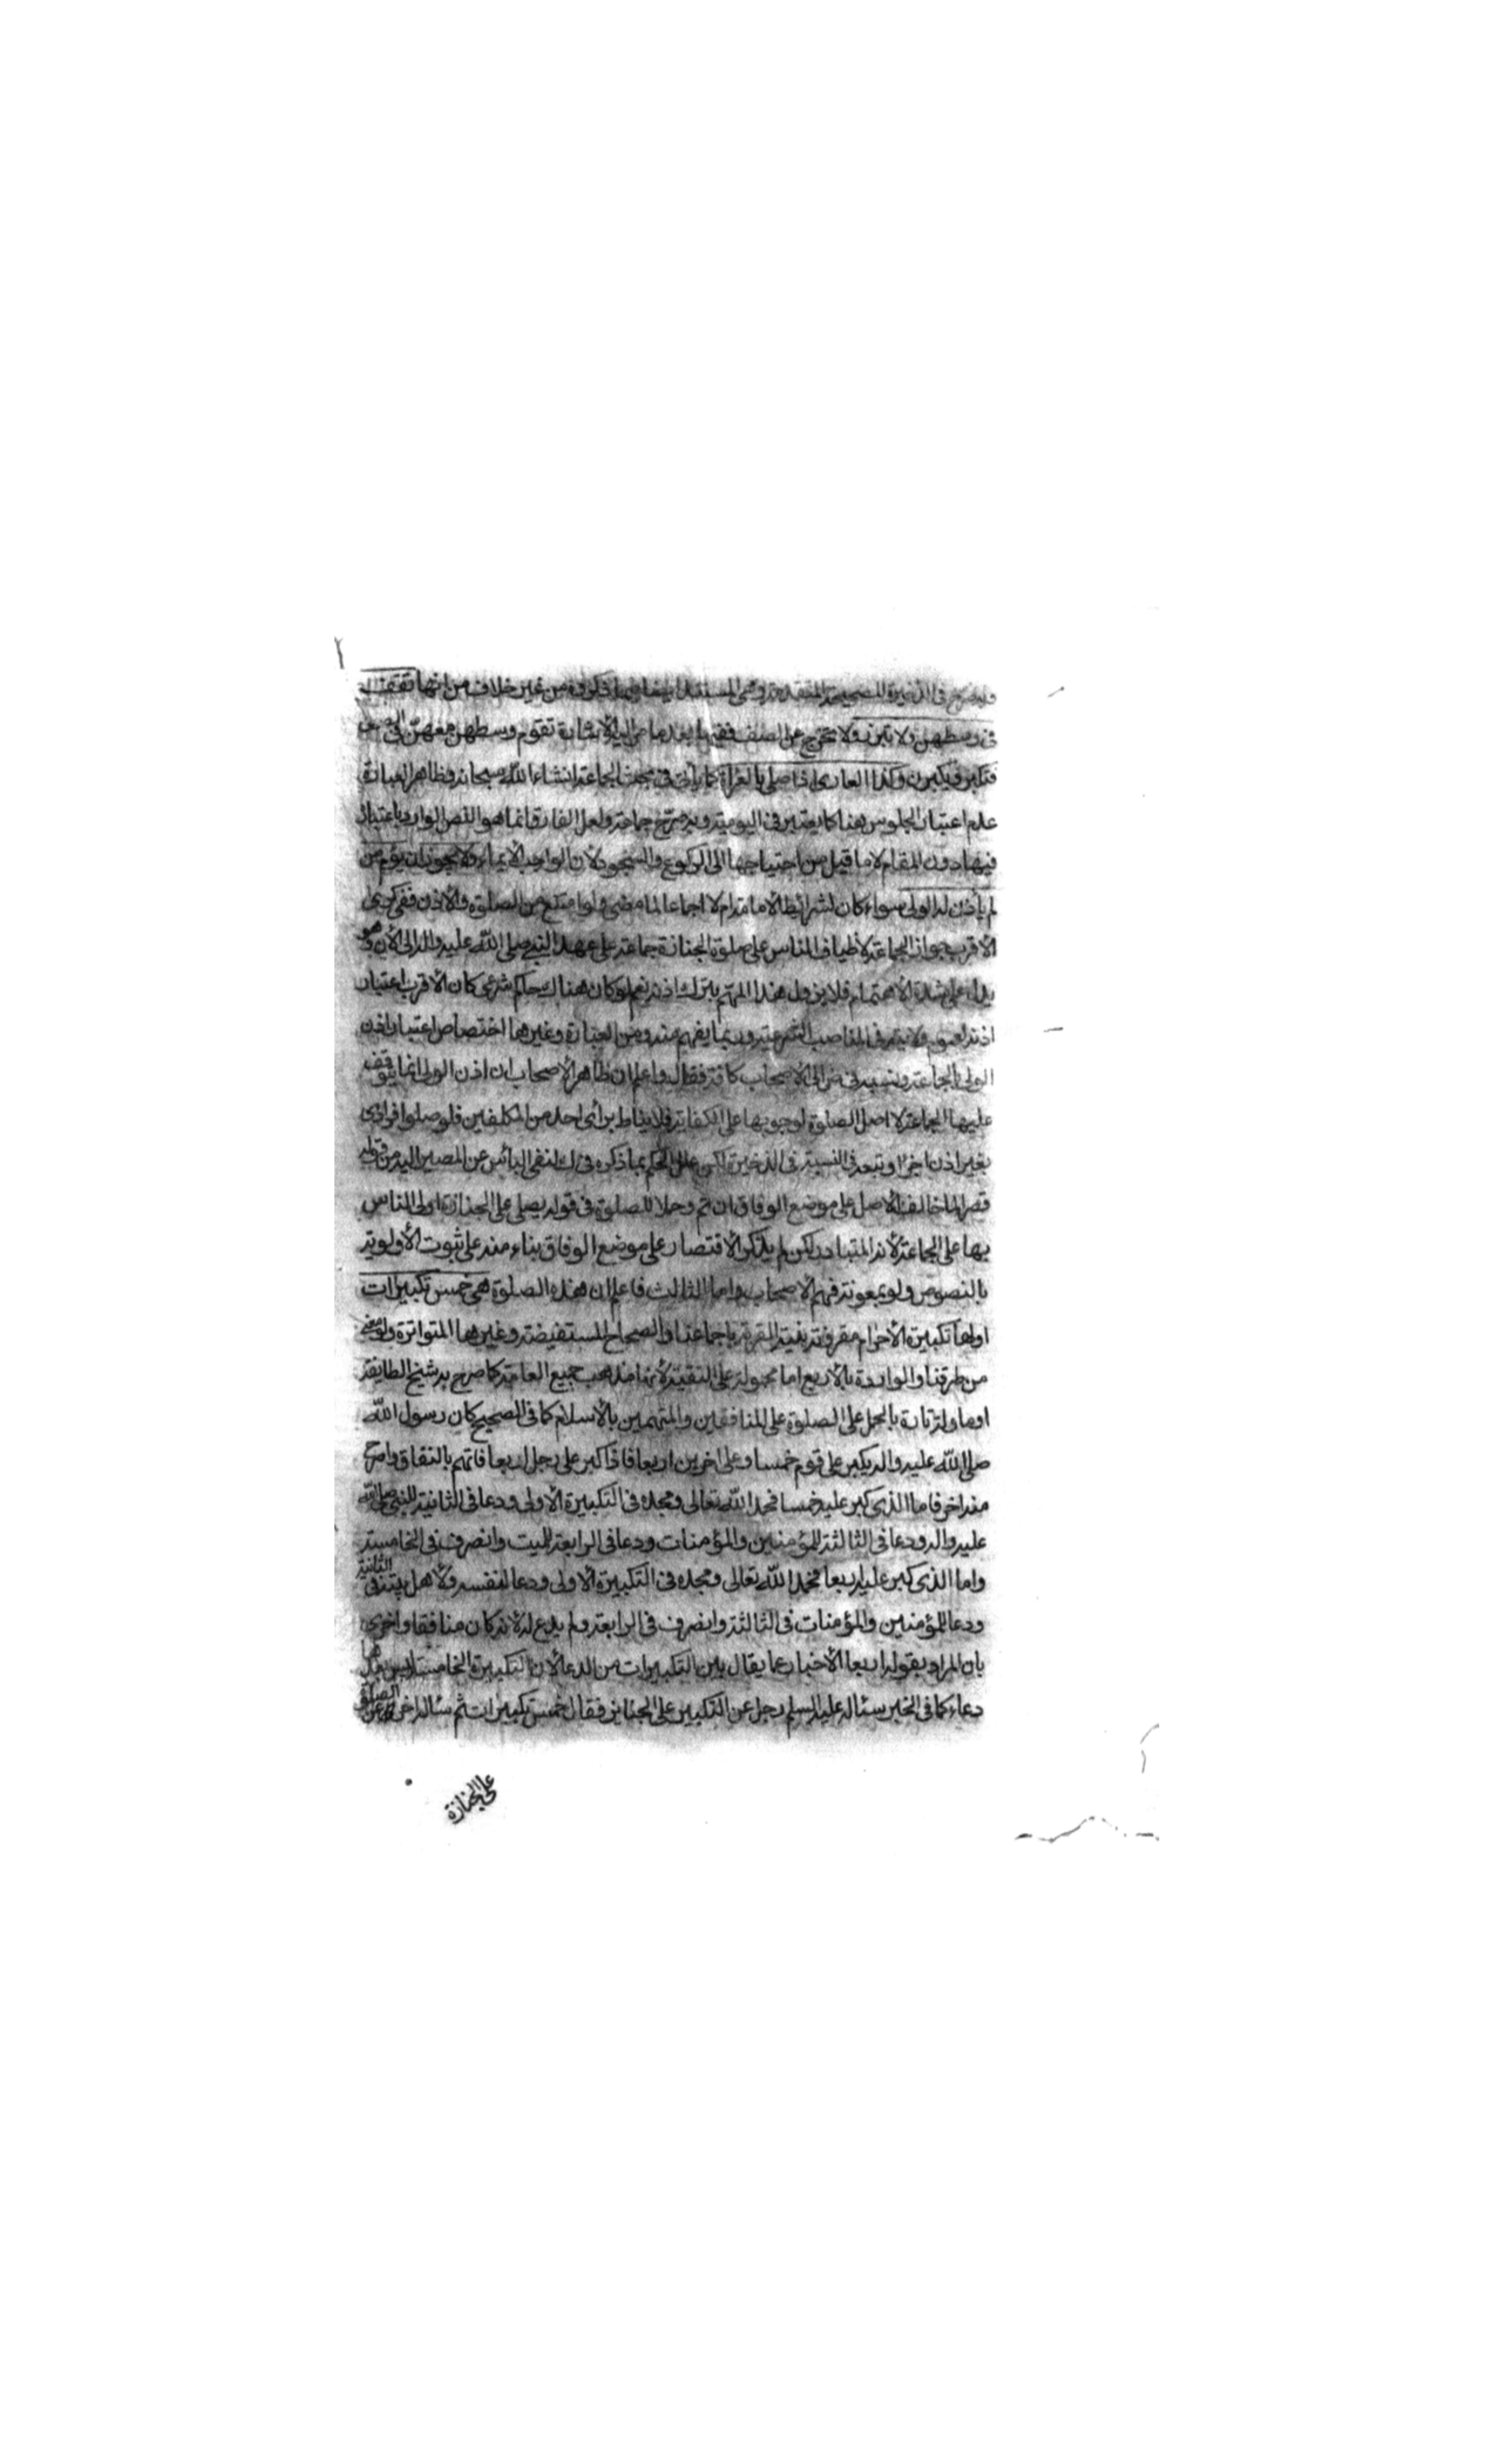 وبه صرح في الذخيرة للصحيحة المتقدمة وهي المستند فيما ذكروه من غير خلاف من انها تقف
في وسطهن ولا تبرز ولا تخرج عن الصف ففيها بعد ما مر اليه الأشارة تقوم وسطهن معهن في الصف
فتكبر ويكبرن وكذا العاري اذا صلى بالعراة كما يأتي في بحث الجماعة انشاء الله سبحانه وظاهر العبارة
عدم اعتبار الجلوس هنا كما يعتبر في اليومية وبه صرح جماعة ولعل الفارق انما هو النص الوارد باعتباره
فيها دون المقام لا ما قيل من احتياجها الى الركوع والسجود لأن الواجب الأيماء ولا يجوز ان يؤم من
لم يأذن له الولي سواء كان لشرائط الأمامة ام لا اجماعا لما مضى ولو امتنع من الصلوة والأذن ففي كرى
الأقرب جواز الجماعة لأطباق الناس على صلوة الجنازة جماعة على عهد النبي صلى الله عليه واله الى الأن وهو
يدل على شدة الأهتمام فلا يزول هذا المهم بترك اذنه نعم لو كان هناك حاكم شرعي كان الأقرب اعتبار
اذنه لعموم ولايته في المناصب الشرعية وربما يفهم منه ومن العبارة وغيرهما اختصاص اعتبار اذن
الولي بالجماعة ونسبه في ض الى الأصحاب كافة فقال واعلم ان ظاهر الأصحاب ان اذن الولي انما يتوقف
عليها الجماعة لا اصل الصلوة لوجوبها على الكفاية فلا يناط برأي احد من المكلفين فلو صلوا فرادى
بغير اذن اجزا وتبعه في النسبة في الذخيرة لكن علل الحكم بما ذكره في ك لنفي البأس عن المصير اليه من قوله
قصرا لما خالف الأصل على موضع الوفاق ان تم وحملا للصلوة في قوله يصلي على الجنازة اولى الناس
بها على الجماعة لأنه المتبادر لكن لم يذكر الأقتصار على موضع الوفاق بناء منه على ثبوت الأولوية
بالنصوص ولو بمعونة فهم الأصحاب واما الثالث فاعلم ان هذه الصلوة هي خمس تكبيرات
اولها تكبيرة الأحرام مقرونة بنية القربة باجماعنا والصحاح المستفيضة وغيرها المتواترة ولو معنى
من طرقنا والواردة بالأربع اما محمولة على التقية لأنها مذهب جميع العامة كما صرح به شيخ الطايفة
او ماولة تارة بالحمل على الصلوة على المنافقين والمتهمين بالأسلام كما في الصحيح كان رسول الله
صلى الله عليه واله يكبر على قوم خمسا وعلى اخرين اربعا فاذا كبر على رجل اربعا فاتهم بالنفاق واصرح
منه اخر فاما الذي كبر عليه خمسا فحمد الله تعالى ومجده في التكبيرة الأولى ودعا في الثانية للنبي صلى الله
عليه واله ودعا في الثالثة للمؤمنين والمؤمنات ودعا في الرابعة للميت وانصرف في الخامسة
واما الذي كبر عليه اربعا فحمد الله تعالى ومجده في التكبيرة الأولى ودعا لنفسه ولأهل بيته في الثانية
ودعا للمؤمنين والمؤمنات في الثالثة وانصرف في الرابعة ولم يدع له لأنه كان منافقا واخرى
بان المراد بقوله اربعا الأخبار عما يقال بين التكبيرات من الدعاء لأن التكبيرة الخامسة ليس بعدها
دعاء كما في الخبر سئاله عليه السلم رجل عن التكبير على الجنايز فقال خمس تكبيرات ثم سئاله اخر عن الصلوة
على الجنازة